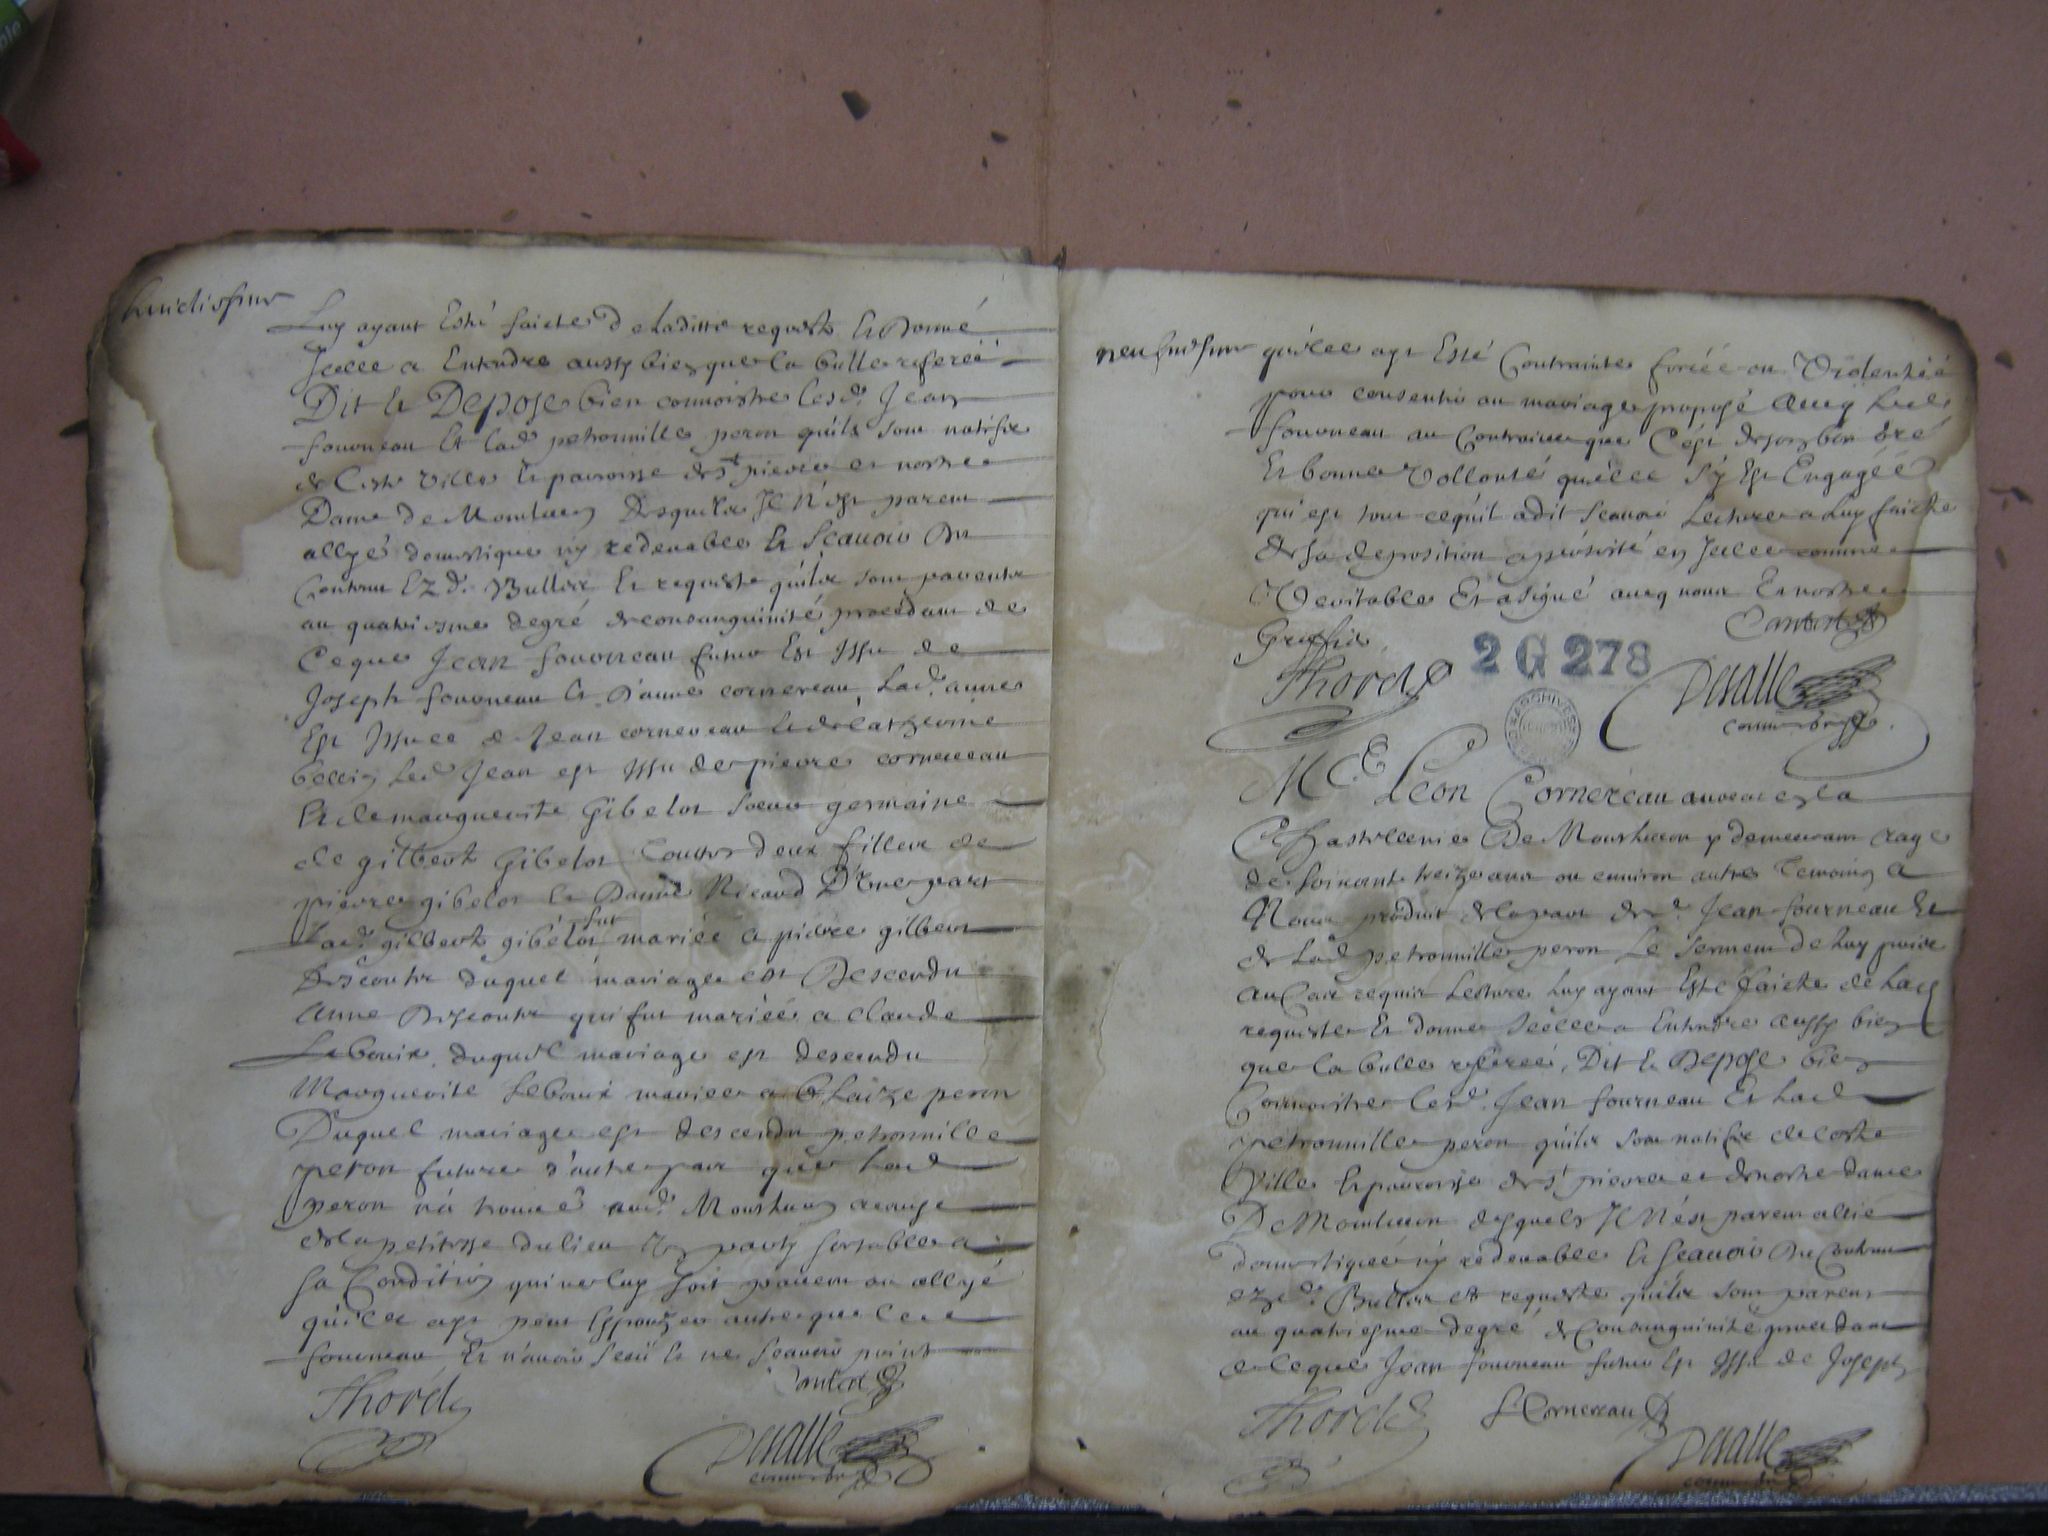 huictiesme
Luy ayant Esté faicte de laditte requeste Et Donné
Icelle a Entendre aussy bien que la bulle referéé
Dit Et Depose bien connoistre lesd. Jean
fourneau Et lad petronnille peron quils sont natifs
de Ceste ville Et parroisse de st pierre et nostre
Dame de Montluçon desquels Il N'est parent
allyé domestique ny redeuable Et Scauoir du
Contenu Ezd. Bulles Et requeste quils sont parents
au quatriesme degré de consanguinité procedant de
Ceque Jean fourneau futur Est Issu de
Joseph fourneau Et D'anne cornereau, lad. anne
Est Issuee de Jean cornereau Et de Catherine
bellin led Jean est Issu de pierre cornereau
Et de marguerite Gibelot Soeur germaine
de gilberte Gibelot touttes deux filles de
pierre gibelot Et Danne Ricaud D'Une part
Lad. gilberte gibelot fut mariéé a pierre gilbert
Descoutx duquel mariage est Descendu
Anne Descoutx qui fut mariéé a Claude
Lebouis, duquel mariage est descendu
Marguerite Lebouis mariee a Blaize peron
Duquel mariage est descendu petronnille
peron future d'autre part que lad
peron n'à trouué aud. Montluçon acause
de la petitesse du lieu Un party sortable a
sa Condition qui ne luy soit parent ou allyé
quelle aye peut Espouzer autre que led
fourneau Et n'auoir sceü Et ne scauoir point
Thorel
Cantat
Deualle
commre
neufuiesme
quelle aye Esté Contrainte forcéé ou Violentéé
pour consentir au mariage propozé auecq led
fourneau au Contraire que C'est de son bon gré
Et bonne Vollonté quelle s'y Est Engagéé
qui est tout cequil adit scauoir Lecture a luy faicte
de sa deposition a persisté en Icelle comme
Veritable Et a signé aueq nous Et nostre
Greffier
Cantat
Thorel
2 G 278
Deualle
commre
ARCHIVES
Me Leon Cornereau aduocat en la
Chastellenie De Montlucon y demeurant aagé
de soixante treize ans ou enuiron autre temoing A
Nous produit de la part dud. Jean fourneau Et
de lad petronnille peron Le serment de luy pris
au Cas requis Lecture luy ayant Esté faicte de lad
requeste Et donné Icelle a Entendre aussy bien
que la bulle referéé, Dit Et Depose bien
Connoistre lesd. Jean fourneau Et lad
petronnille peron quils sont natifs de Ceste
Ville Et parroisse de st pierre et de nostre dame
De Montlucon desquels Il N'est parent allié
domestiqueé ny redeuable Et scauoir du Contenu
ezd. Bulles et requeste quils sont parens
au quatriesme degré de Consanguinité procedant
de Ceque Jean fourneau futur Est Issu de Joseph
Thorel
L Cornereau
Deualle